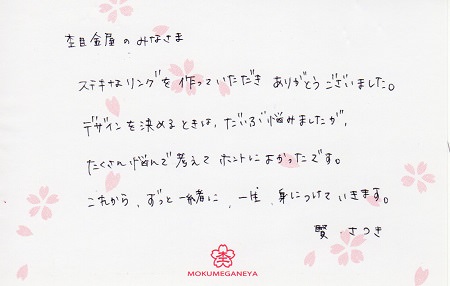 杢目金屋のみなさま
ステキなリングを作っていただき ありがとうございました。
デザインを決めるときは、だいぶ悩みましたが、
たくさん悩んで考えて ホントによかったです。
これから、ずっと一緒に、一生、身につけていきます。
賢・さつき
杢
MOKUMEGANEYA